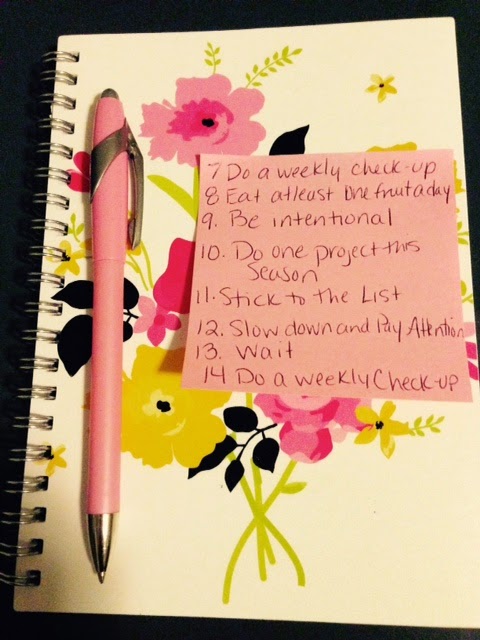 7 Do a weekly check-up
8 Eat atleast One fruit a day
9. Be intentional
10. Do one project this
Season
11. Stick to the List
12. Slow down and Pay Attention
13. Wait
14 Do a weekly Check-up